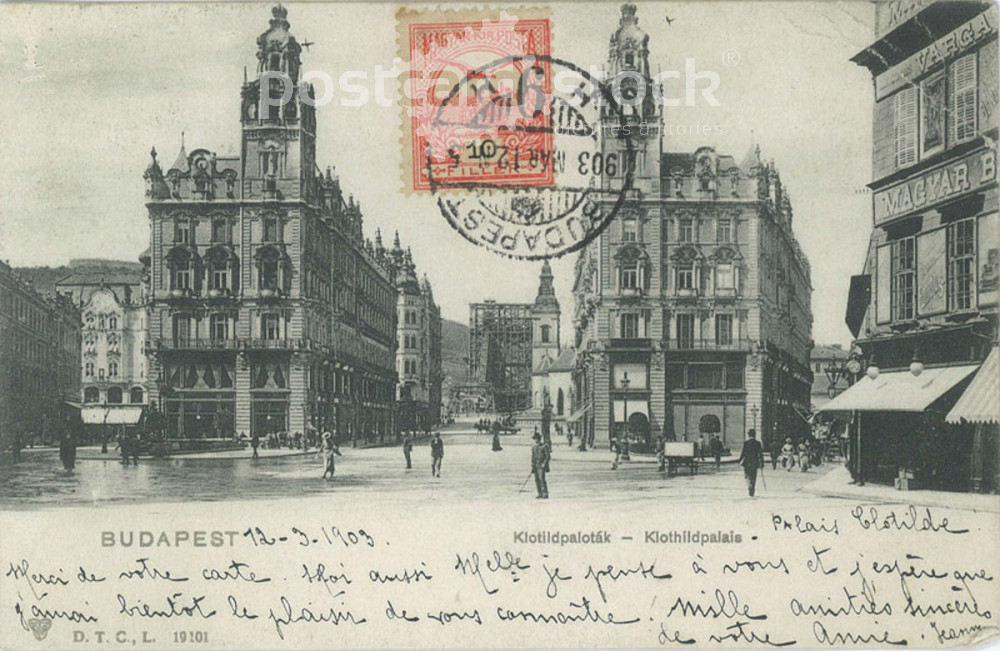 postcardstock®
MAGYAR KIR. POSTA
10
FILLÉR
6 H
903 MAR 12
BUDAPEST
VARGA
MAGYAR B
BUDAPEST 12-3-1903.
Klotildpaloták – Klothildpalais - Palais Clotilde
Merci de votre carte. Moi aussi Melle je pense à vous et j'espère que
j'aurai bientôt le plaisir de vous connaître. Mille amitiés sincères
de votre Amie. Jeanne
D. T. C., L. 19101